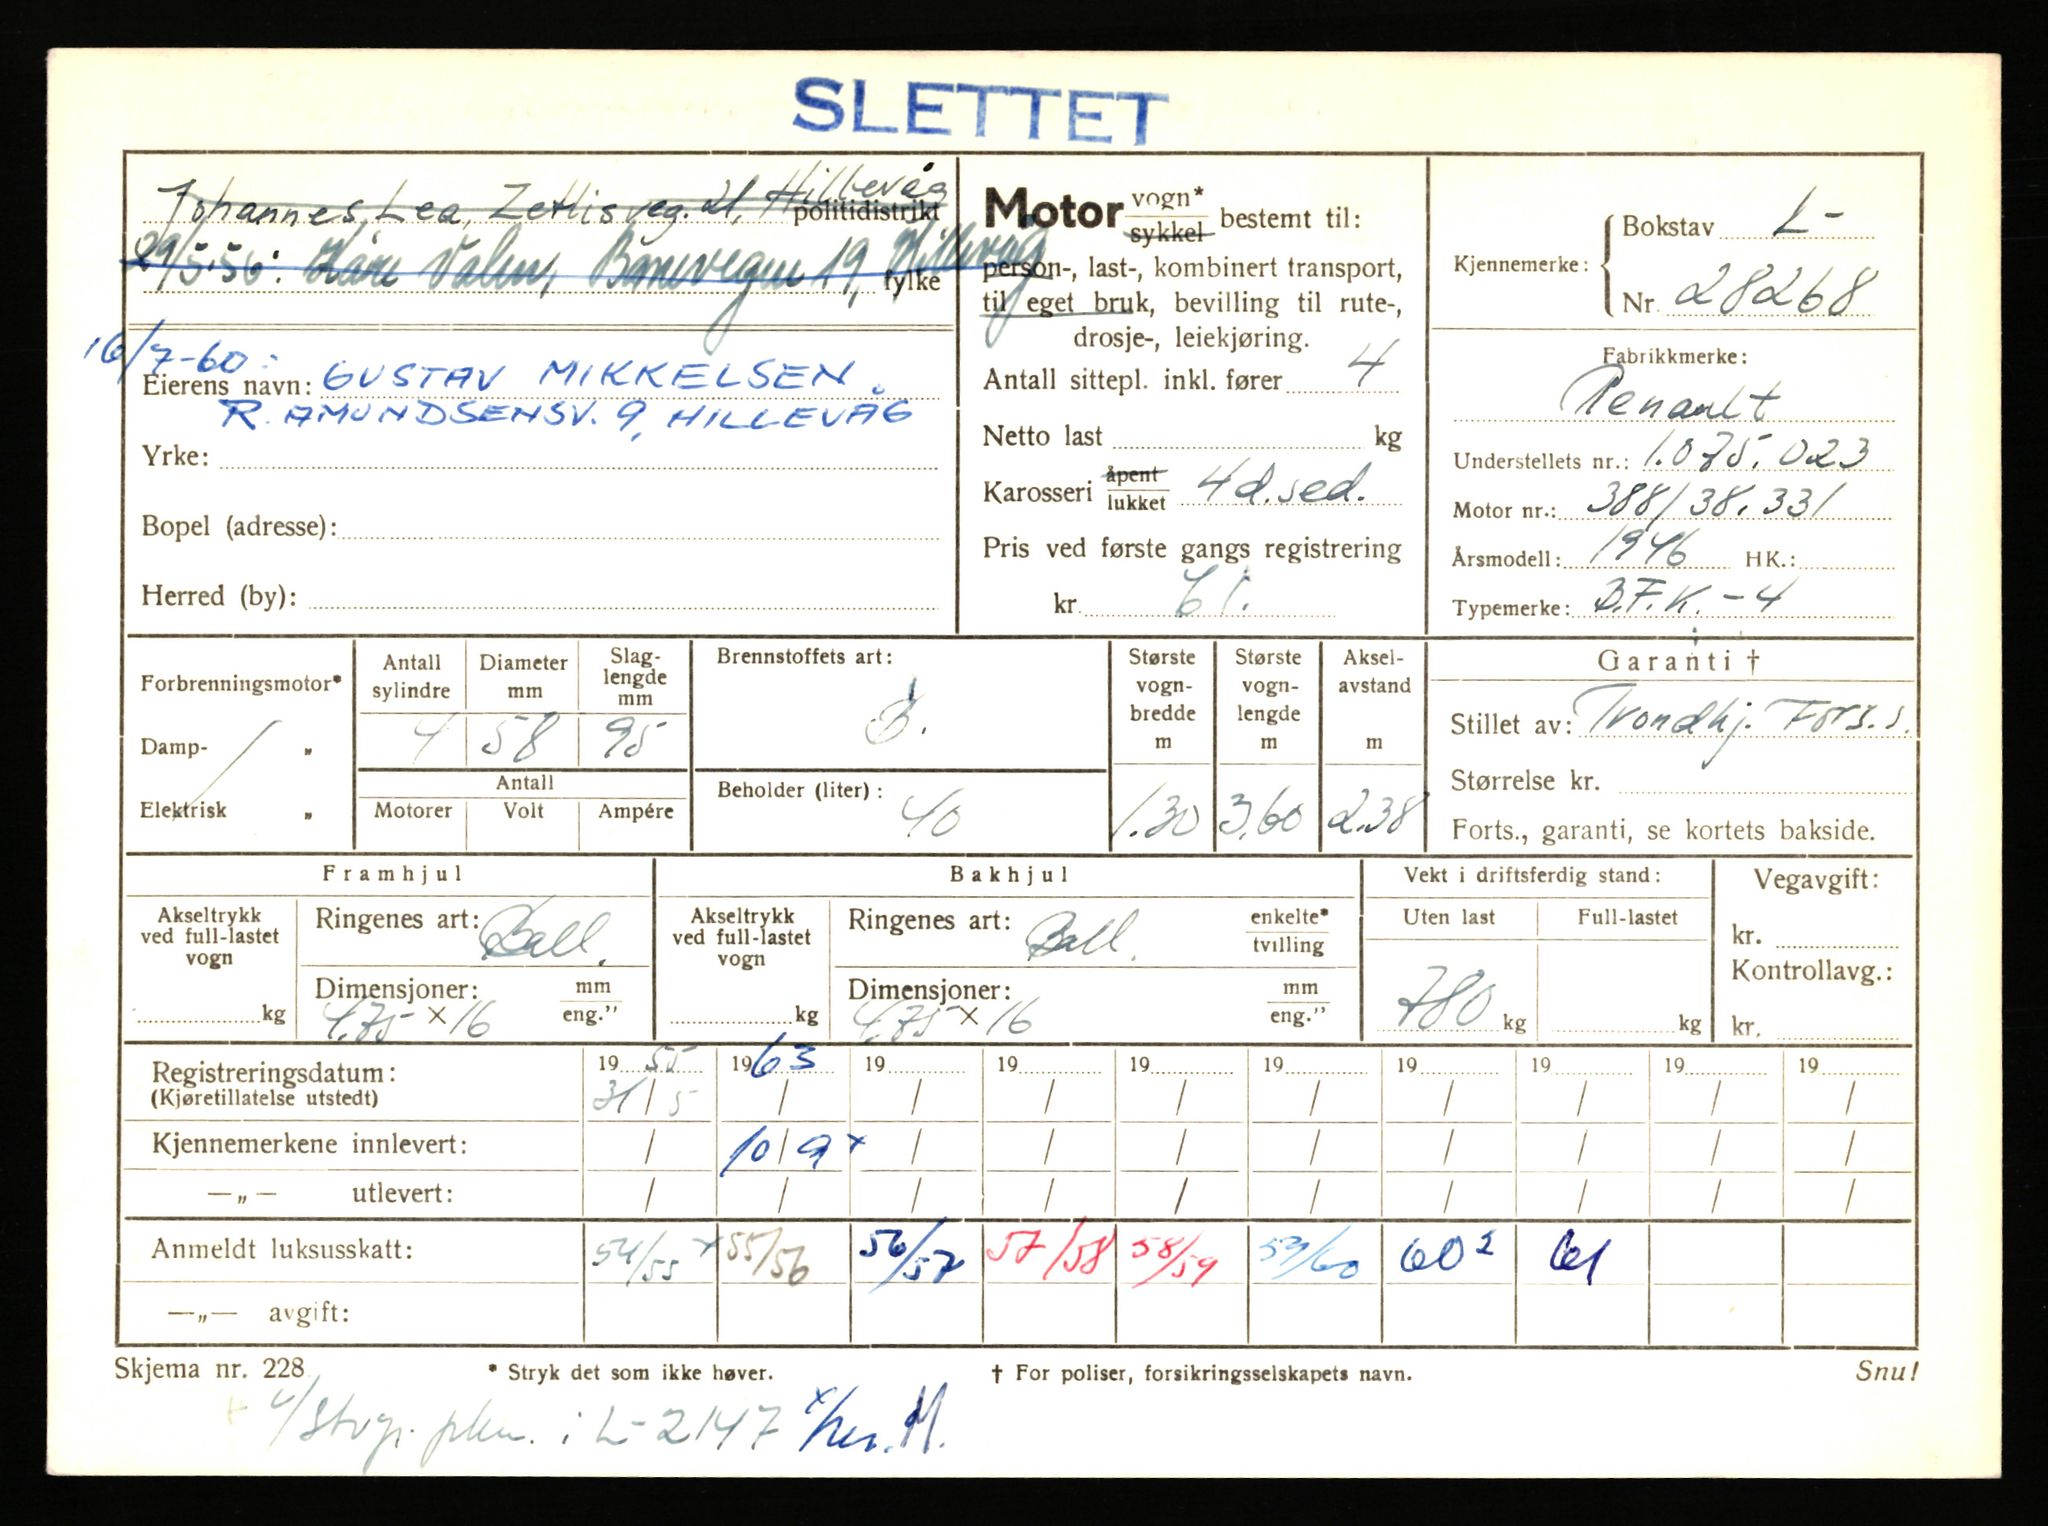 SLETTET
Johannes Lea, Zetlisveg. 21, Hillevåg
politidistrikt
29/5.56: Kåre Valen, Banevegen 19, Hillevåg
fylke
16/7-60:
Eierens navn: GUSTAV MIKKELSEN.
R. AMUNDSENSV. 9, HILLEVÅG
Yrke:
Bopel (adresse):
Herred (by):
Motor vogn* sykkel bestemt til:
person-, last-, kombinert transport,
til eget bruk, bevilling til rute-,
drosje-, leiekjøring.
Antall sittepl. inkl. fører 4
Netto last kg
Karosseri åpent lukket 4 d. sed.
Pris ved første gangs registrering
kr.
Kjennemerke: Bokstav L-
Nr. 28268
Fabrikkmerke:
Renault
Understellets nr.: 1.075.023
Motor nr.: 388/38.331
Årsmodell: 1946 HK.:
Typemerke: B.F.K.-4
Forbrenningsmotor*
Damp- "
Elektrisk "
Antall sylindre 4
Diameter mm 58
Slaglengde mm 95
Antall
Motorer Volt Ampére
Brennstoffets art:
B.
Beholder (liter): 40
Største vognbredde m 1.30
Største vognlengde m 3,60
Akselavstand m 2.38
Garanti †
Stillet av: Trondhj. Fors.s.
Størrelse kr.
Forts., garanti, se kortets bakside.
Framhjul
Akseltrykk ved full-lastet vogn kg
Ringenes art: Ball.
Dimensjoner: 4.75 × 16 mm eng."
Bakhjul
Akseltrykk ved full-lastet vogn kg
Ringenes art: Ball. enkelte* tvilling
Dimensjoner: 4.75 × 16 mm eng."
Vekt i driftsferdig stand:
Uten last Full-lastet
780 kg kg
Vegavgift:
kr.
Kontrollavg.:
kr.
Registreringsdatum: 19 55 19 63 19 19 19 19 19 19 19 19
(Kjøretillatelse utstedt) 31/5 / / / / / / / / /
Kjennemerkene innlevert: / 10/9 x / / / / / / / /
—„— utlevert: / / / / / / / / / /
Anmeldt luksusskatt: 54/55 x 55/56 56/57 57/58 58/59 59/60 60² 61
—„— avgift:
Skjema nr. 228 * Stryk det som ikke høver. † For poliser, forsikringsselskapets navn. Snu!
i L-2147